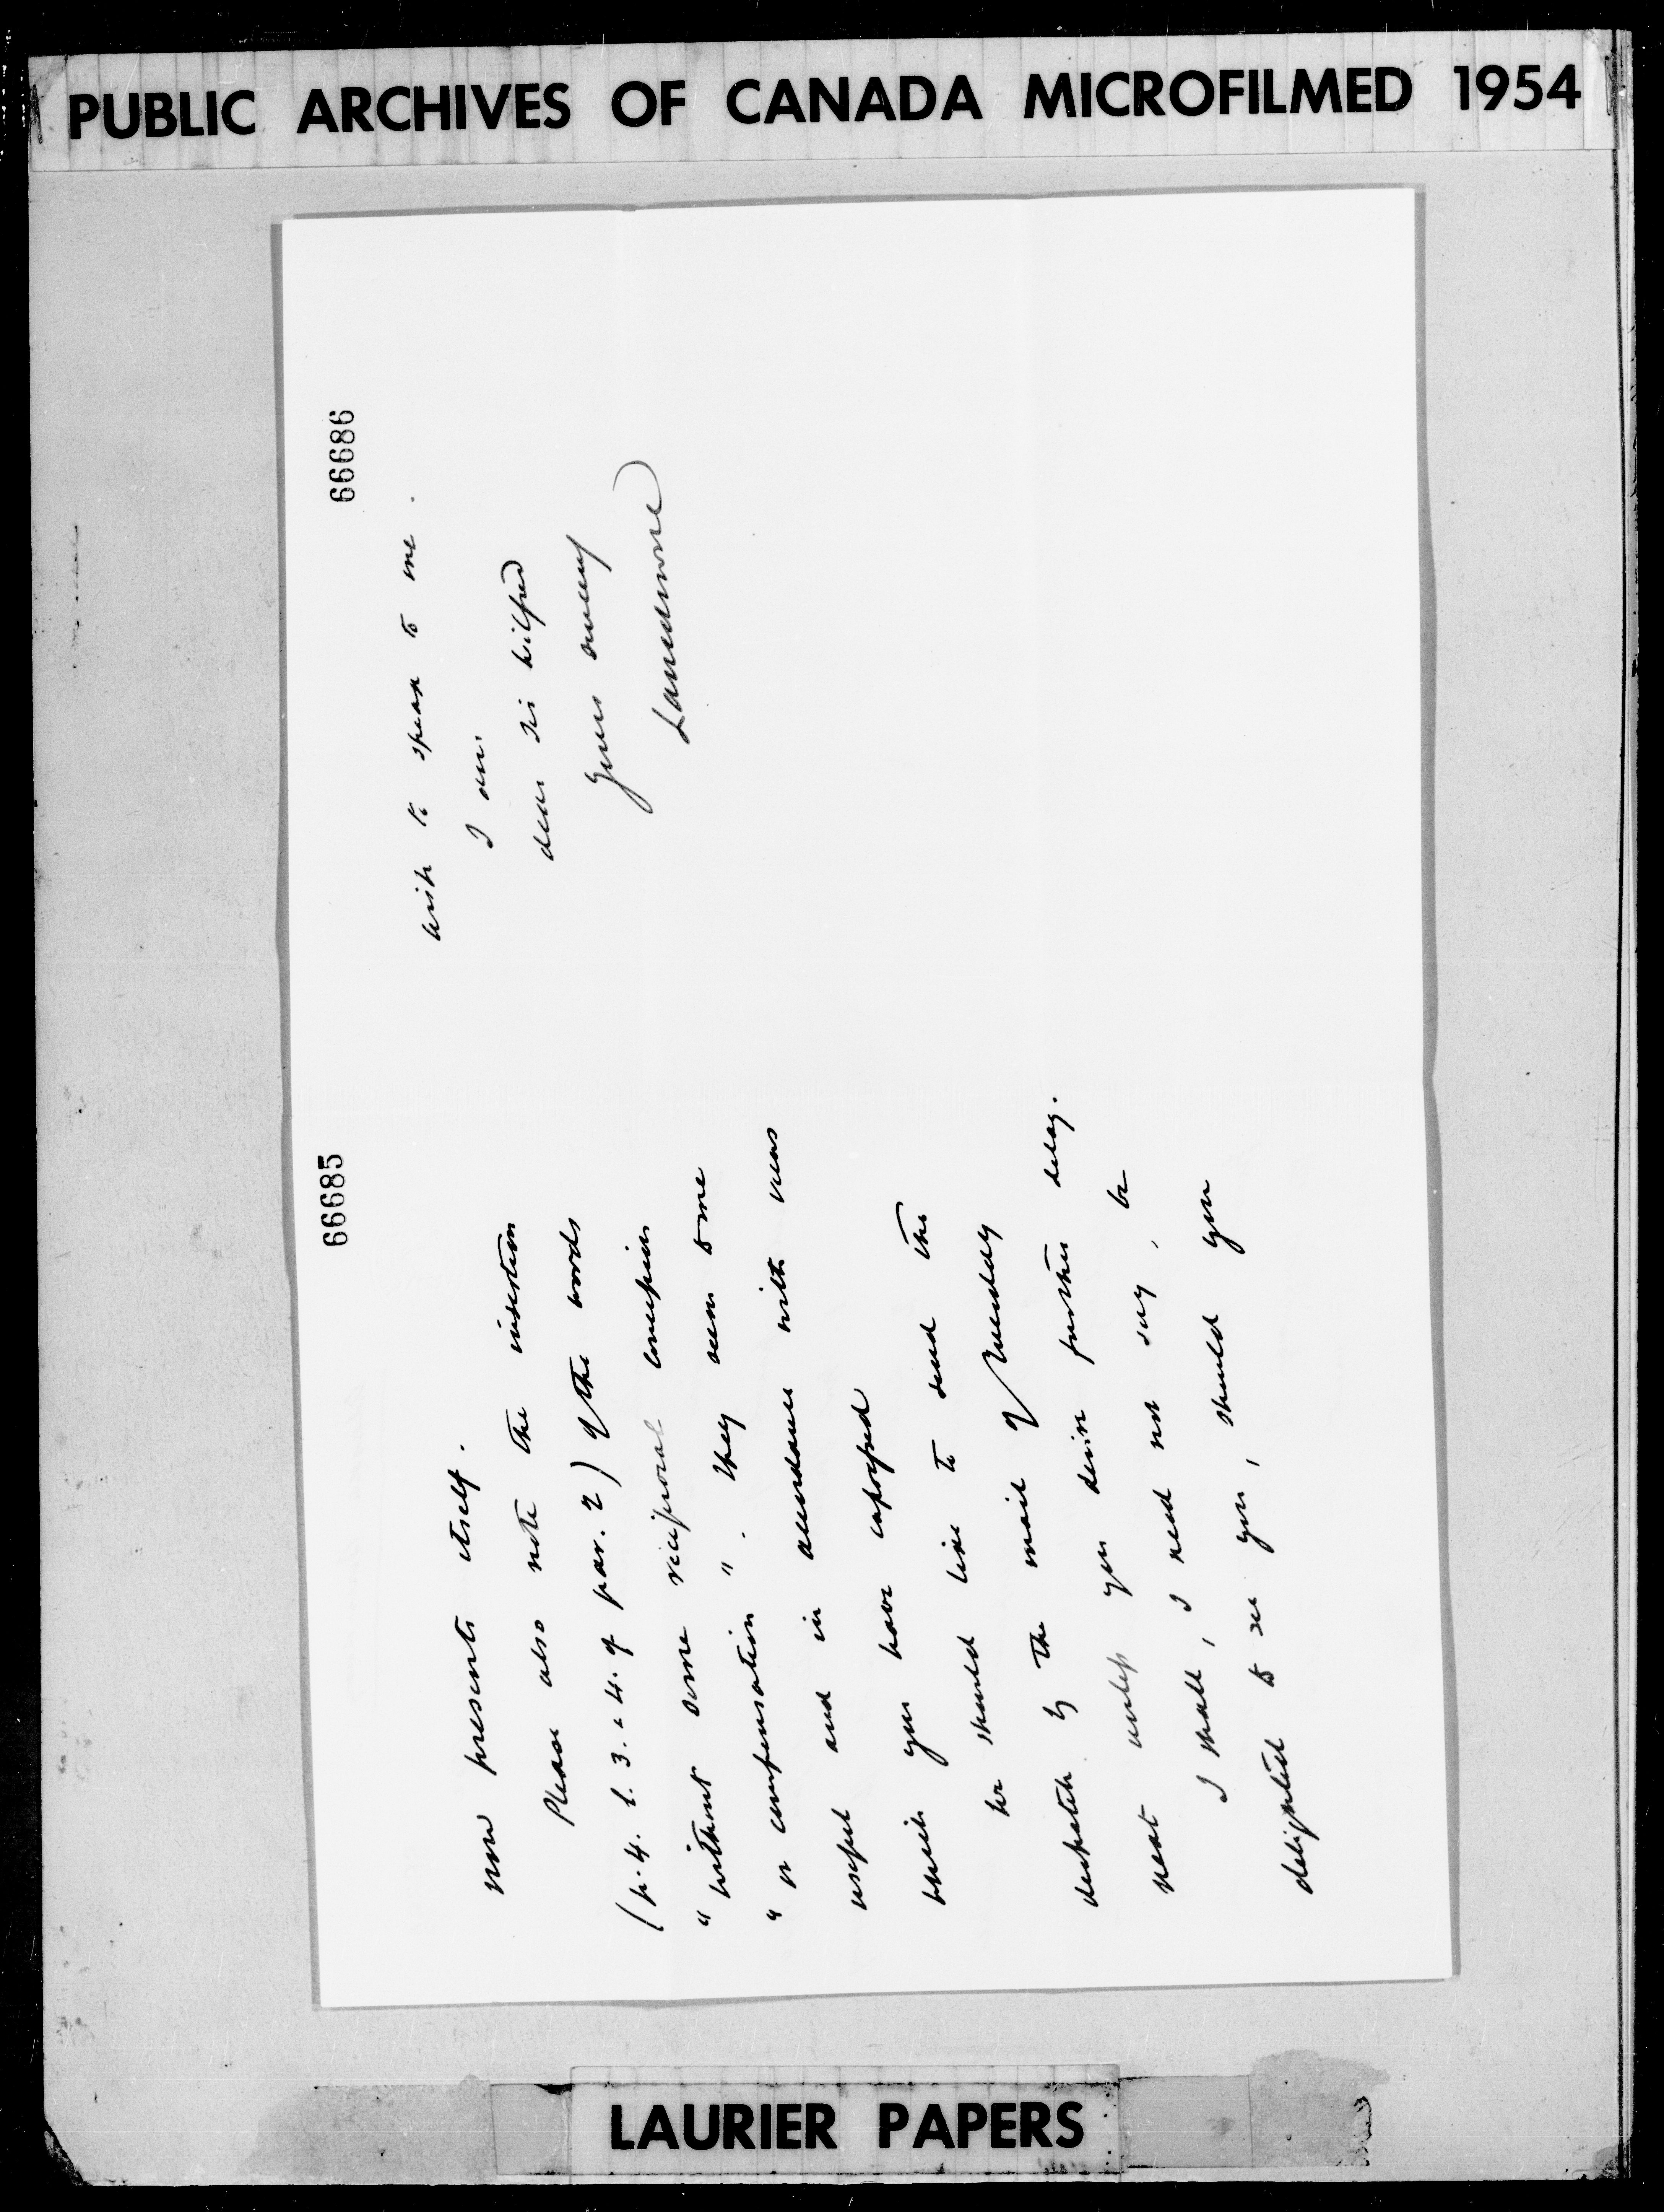 PUBLIC ARCHIVES OF CANADA MICROFILMED 1954
66685
now presents itself.
Please also note the insertion
(p. 4. l. 3. & 4. of par. 2) of the words
"without some reciprocal concession
"or compensation". They seem to me
useful and in accordance with views
which you have expressed
We should like to send the
despatch by the mail of Tuesday
next unless you desire further delay.
I shall, I need not say, be
delighted to see you, should you
66686
wish to speak to me.
I am
dear Sir Wilfred
yours sincerely
Lansdowne
LAURIER PAPERS